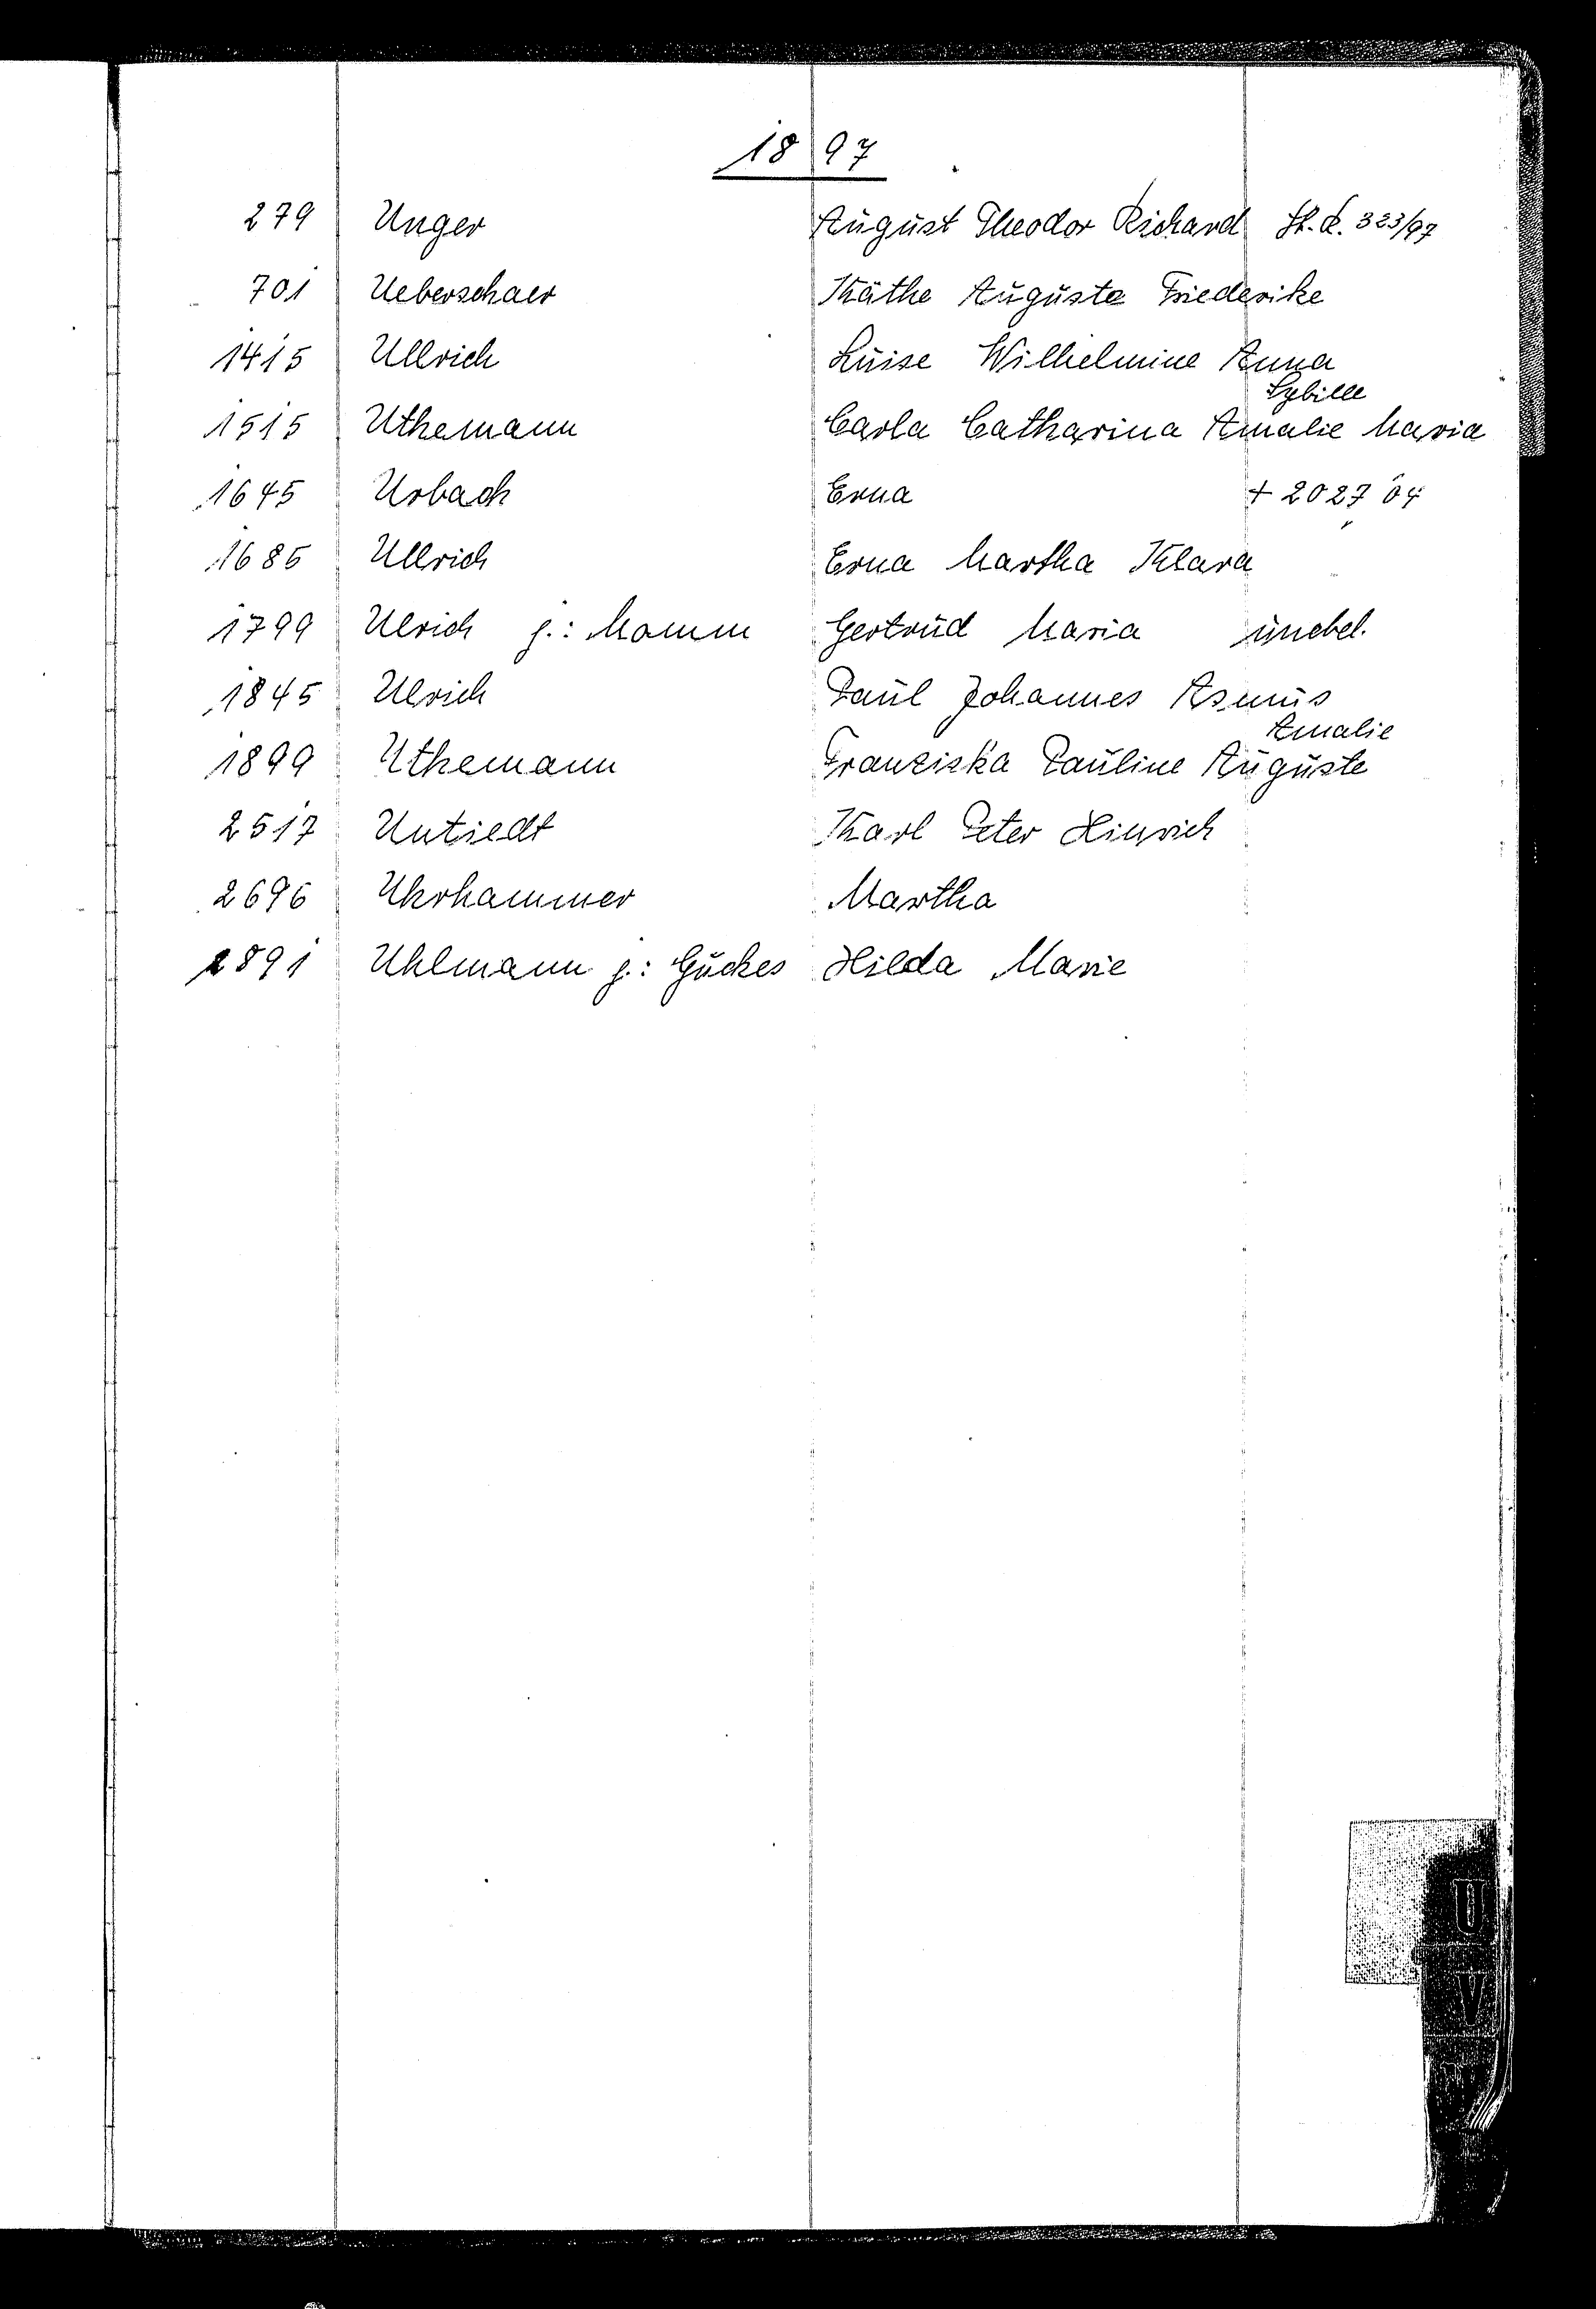 1897
279 Unger August Theodor Richard St. R. 323/97
701 Ueberschaer Käthe Auguste Friederike
1415 Ullrich Luise Wilhelmine Anna
Sybille
1515 Uthemann Carla Catharina Amalie Maria
1645 Urbach Erna + 2027 04
1685 Ullrich Erna Martha Klara
1799 Ulrich j.: Mamm Gertrud Maria unebel.
1845 Ulrich Paul Johannes Asmus
Amalie
1899 Uthemann Franziska Pauline Auguste
2517 Untiedt Karl Peter Hinrich
2696 Uhrhammer Martha
2891 Uhlmann j.: Guckes Hilda Marie
U
V